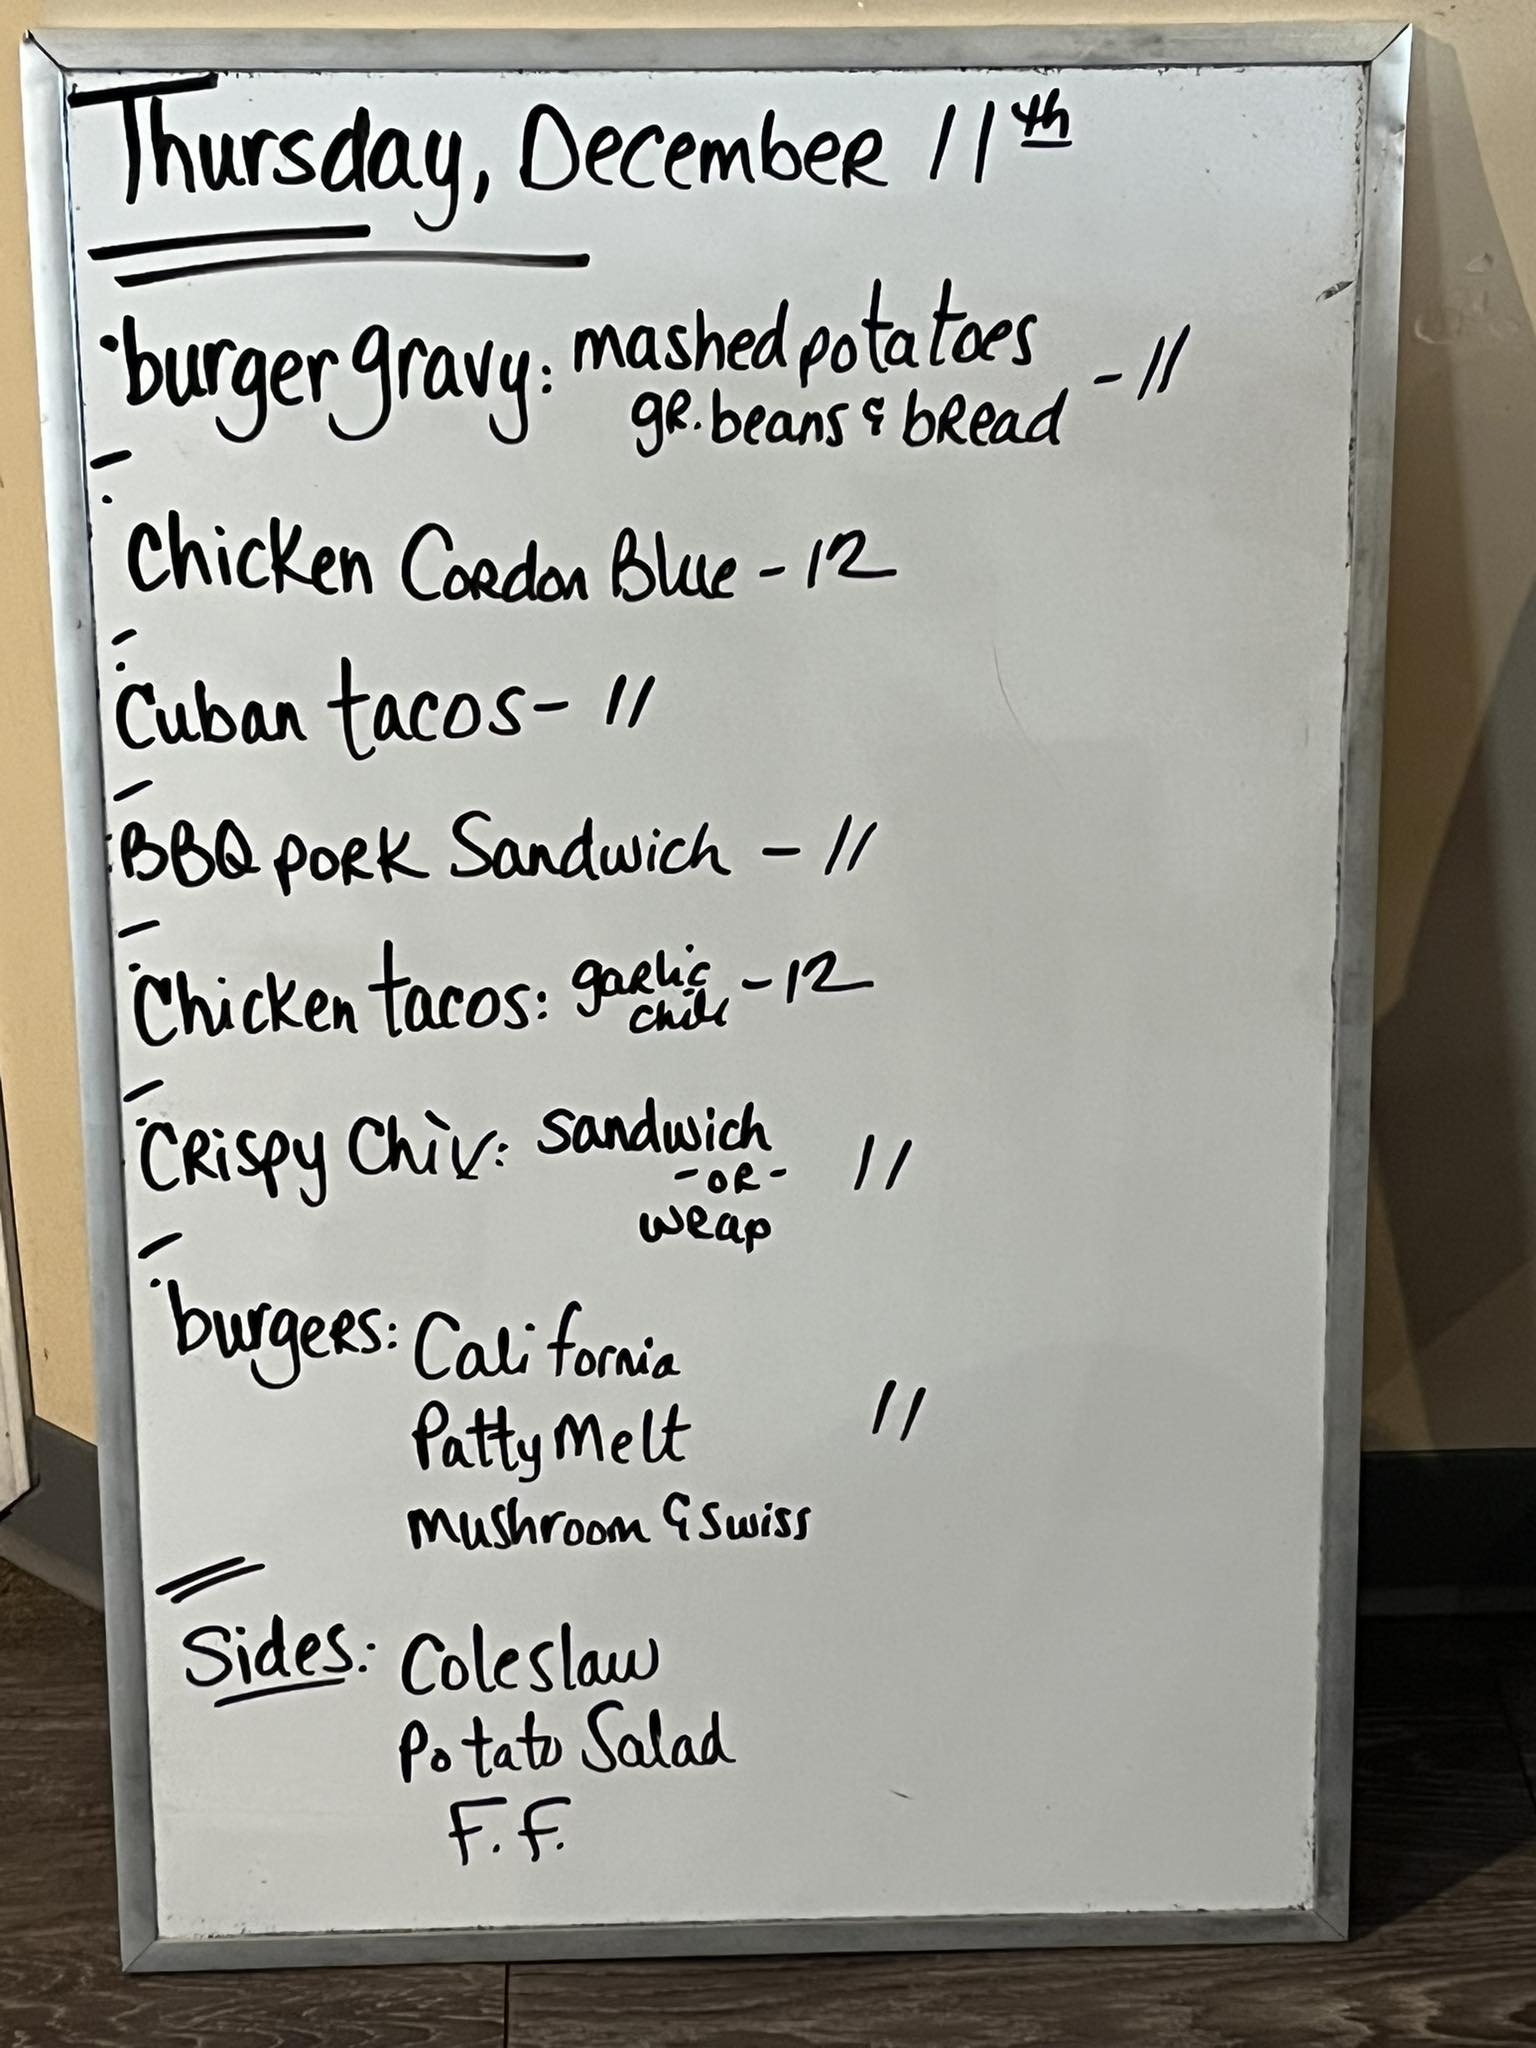 Thursday, December 11th
burger gravy: mashed potatoes - 11
gr. beans & bread
Chicken Cordon Blue - 12
Cuban tacos - 11
BBQ pork Sandwich - 11
Chicken tacos: garlic - 12
chili
Crispy Chix: Sandwich 11
- OR -
wrap
burgers: California
Patty Melt 11
mushroom & swiss
Sides: Coleslaw
Potato Salad
F.F.